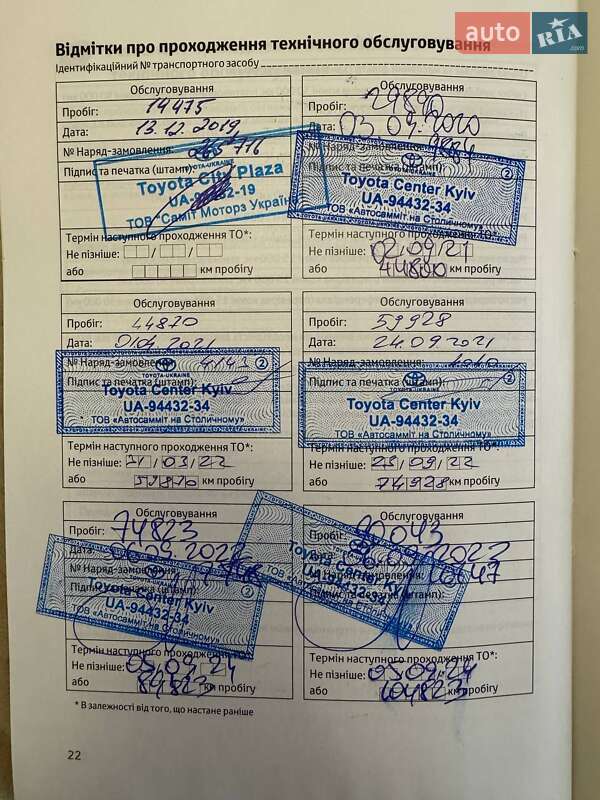 auto RIA.com
Відмітки про проходження технічного обслуговування
Ідентифікаційний № транспортного засобу
Обслуговування
Пробіг: 14475
Дата: 13.12.2019
№ Наряд-замовлення:
Підпис та печатка (штамп):
TOYOTA-UKRAINE
Toyota City Plaza
ТОВ "Саміт Моторз Україна
Термін наступного проходження ТО*:
Не пізніше:
або км пробігу
Обслуговування
Пробіг: 29890
Дата: 03.09.2020
№ Наряд-замовлення:
Підпис та печатка
Toyota Center Kyiv
UA-94432-34
ТОВ «Автосамміт на Столичному»
Термін наступного проходження ТО*:
Не пізніше: 02/09/21
або 44890 км пробігу
Обслуговування
Пробіг: 44870
Дата: 01.04.2021
№ Наряд-замовлення: 4143
Підпис та печатка (штамп):
TOYOTA-UKRAINE
2
Toyota Center Kyiv
UA-94432-34
ТОВ «Автосамміт на Столичному»
Термін наступного проходження ТО*:
Не пізніше: 31/03/22
або 59870 км пробігу
Обслуговування
Пробіг: 59928
Дата: 24.09.2021
№ Наряд-замовлення:
Підпис та печатка (штамп):
TOYOTA-UKRAINE
2
Toyota Center Kyiv
UA-94432-34
ТОВ «Автосамміт на Столичному»
Термін наступного проходження ТО*:
Не пізніше: 23/09/22
або 74928 км пробігу
Обслуговування
Пробіг: 74823
Дата:
№ Наряд-замовлення:
Підпис
2
Toyota Center Kyiv
UA-94432-34
ТОВ «Автосамміт на Столичному»
Термін наступного проходження
Не пізніше: 05/09/24
або 89823 км пробігу
Обслуговування
Пробіг: 90043
Дата:
Toyota Center
ТОВ «Автосамміт на Столичному»
Термін наступного проходження ТО*:
Не пізніше: 05/09/24
або 104823 км пробігу
* В залежності від того, що настане раніше
22